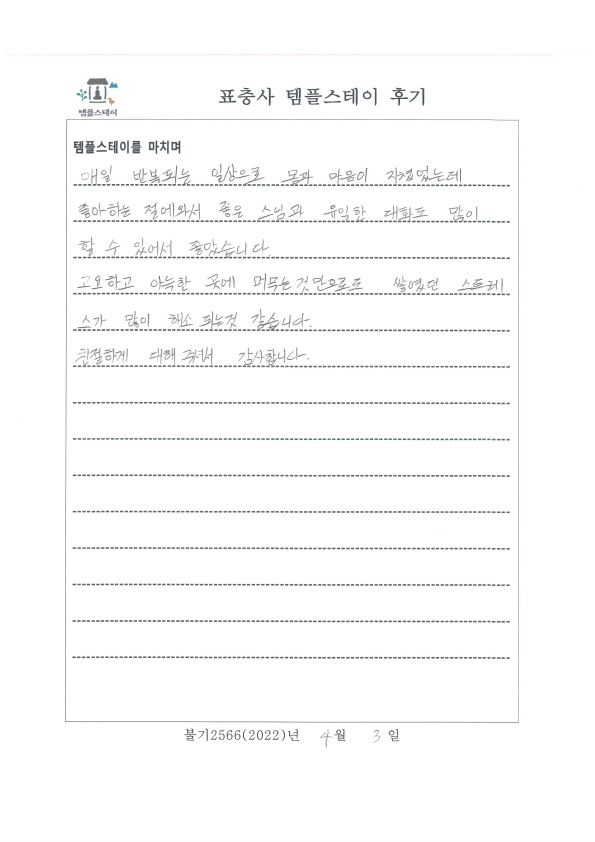 템플스테이
표충사 템플스테이 후기
템플스테이를 마치며
매일 반복되는 일상으로 몸과 마음이 지쳤었는데
좋아하는 절에와서 좋은 스님과 유익한 대화도 많이
할 수 있어서 좋았습니다.
고요하고 아늑한 곳에 머무는것만으로도 쌓였던 스트레
스가 많이 해소 되는것 같습니다.
친절하게 대해 주셔서 감사합니다.
불기2566(2022)년 4월 3일